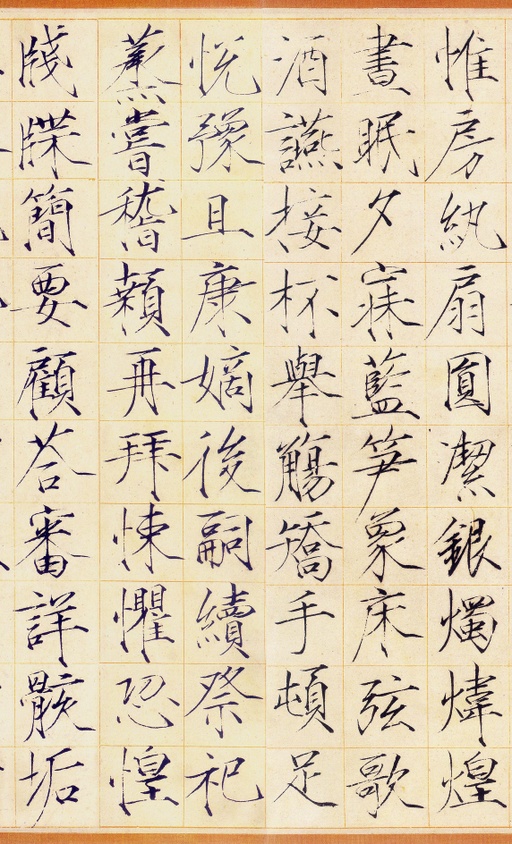 帷房紈扇圓潔銀燭煒煌
晝眠夕寐藍笋象床弦歌
酒讌接杯舉觴矯手頓足
悦豫且康嫡後嗣續祭祀
蒸嘗稽顙再拜悚懼恐惶
牋牒簡要顧荅審詳骸垢